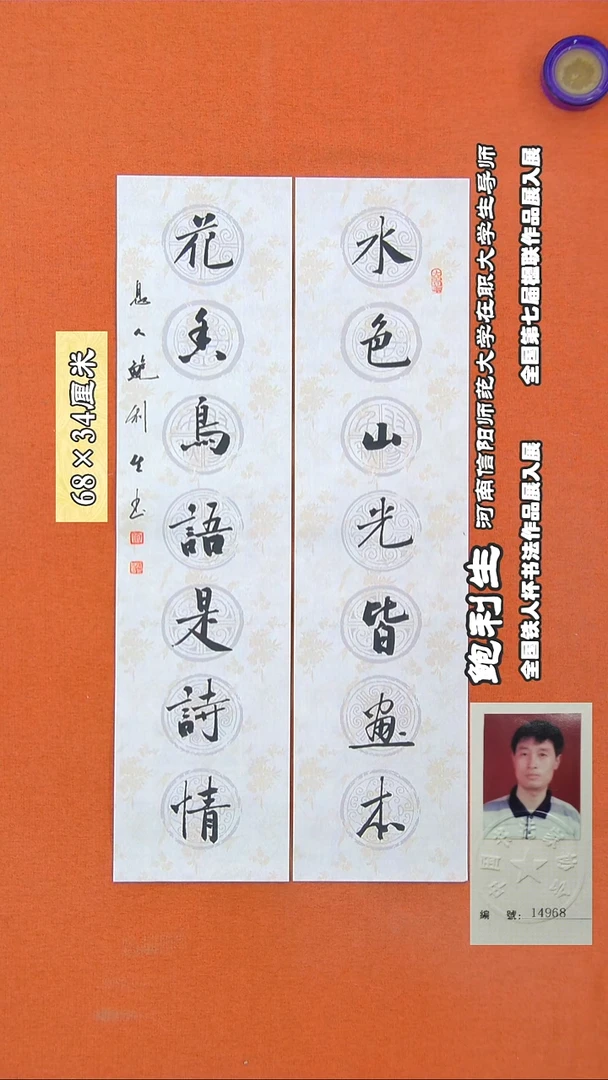 水色山光皆畫本
花香鳥語是詩情
息人鲍利生书
68×34厘米
鲍利生 河南信阳师范大学在职大学生导师
全国铁人杯书法作品展入展 全国第七届楹联作品展入展
編 號: 14968